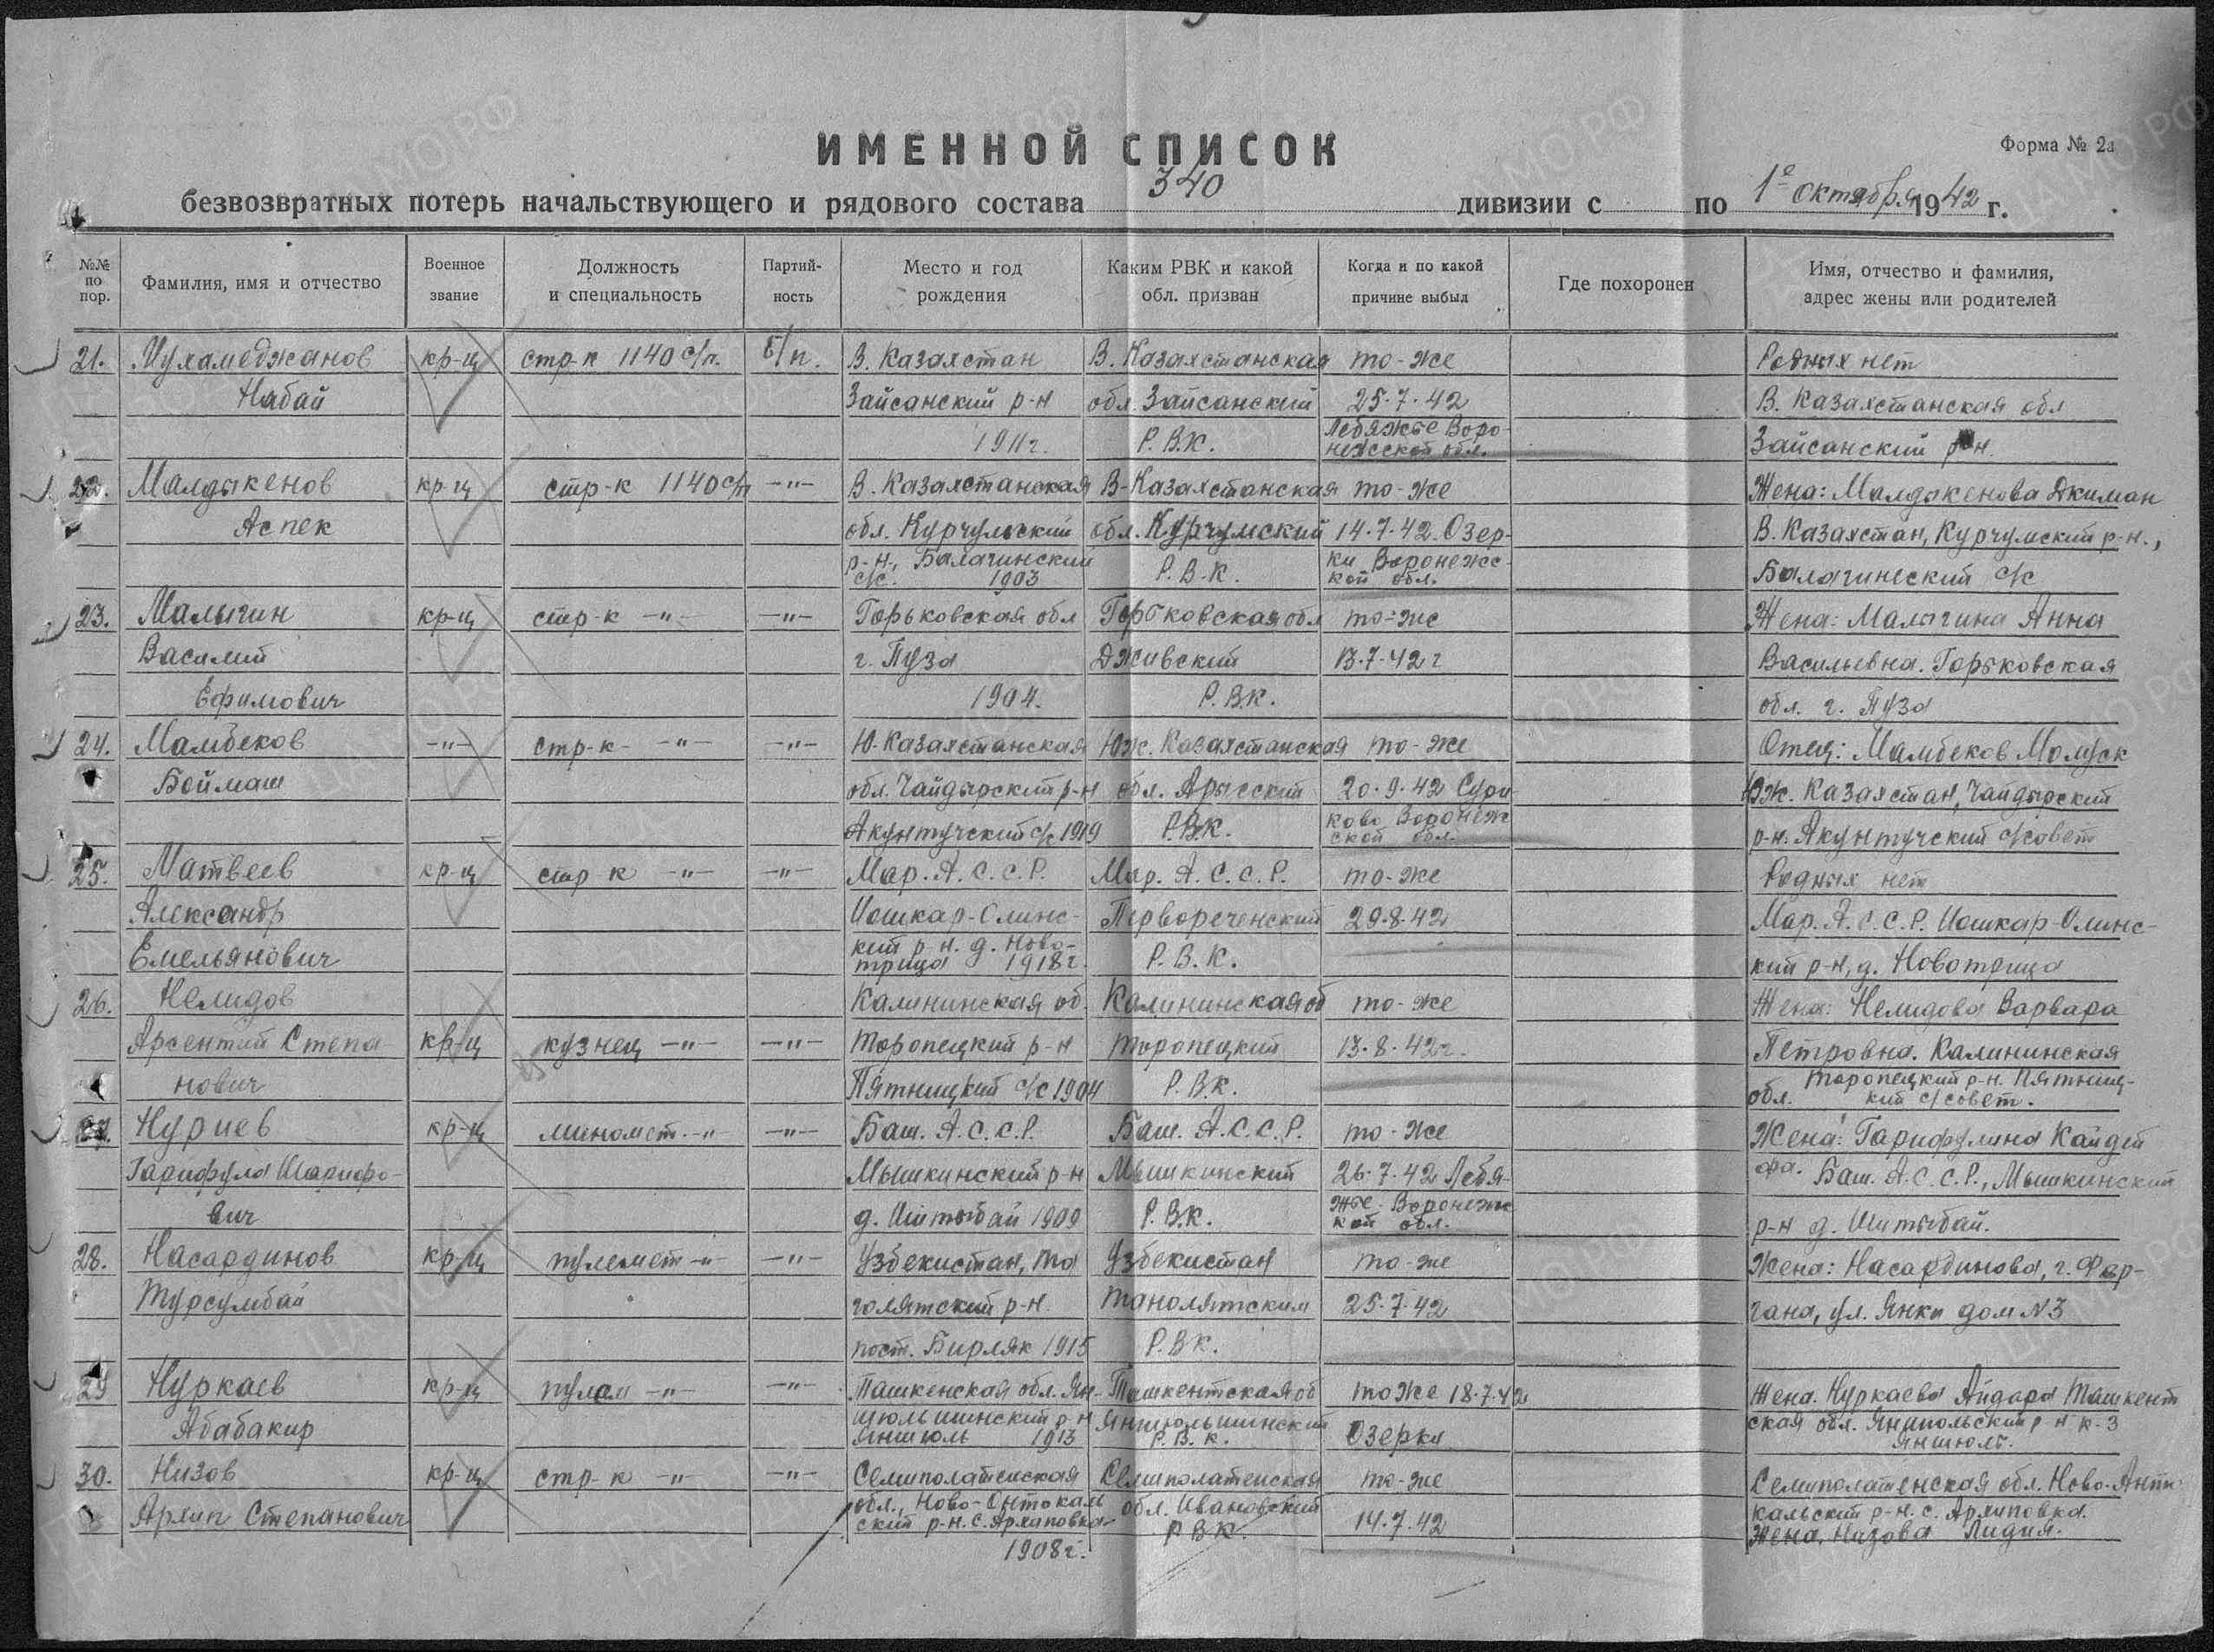 ИМЕННОЙ СПИСОК
Форма № 2а
безвозвратных потерь начальствующего и рядового состава 340 дивизии с по 1е октября 1942 г.
№№ по пор.
Фамилия, имя и отчество
Военное звание
Должность и специальность
Партий- ность
Место и год рождения
Каким РВК и какой обл. призван
Когда и по какой причине выбыл
Где похоронен
Имя, отчество и фамилия, адрес жены или родителей
21. Мухамеджанов кр-ц стр-к 1140 с/п. б/п. В. Казахстан В. Казахстанская то-же Родных нет
Набай Зайсанский р-н обл. Зайсанский 25.7.42 В. Казахстанская обл
1911г. Р.В.К. Лебяжье Воро- Зайсанский р-н.
нежской обл.
22. Малдыкенов кр-ц стр-к 1140 с/п -"- В. Казахстанская В-Казахстанская то-же Жена: Малдыкенова Джиман
Аспек обл. Курчумский обл. Курчумский 14.7.42. Озер- В. Казахстан, Курчумский р-н.,
р-н., Балагинский Р.В.К. ки Воронежс- Балагинский с/с
с/с. 1903 кой обл.
23. Малыгин кр-ц стр-к -"- -"- Горьковская обл Горьковская обл то-же Жена: Малыгина Анна
Василий г. Пуза Дживский 13.7.42г Васильевна. Горьковская
Ефимович 1904. Р.В.К. обл. г. Пуза
24. Мамбеков -"- стр-к- -"- -"- Ю-Казахстанская Юж. Казахстанская то-же Отец: Мамбеков Молуск
Боймаш обл. Чайдырский р-н обл. Арысский 20.9.42 Сури Юж. Казахстан, Чайдырский
Акунтучский с/с 1919 Р.В.К. ково Воронеж р-н. Акунтучский с/совет
ской обл.
25. Матвеев кр-ц стр к -"- -"- Мар. А.С.С.Р. Мар. А.С.С.Р. то-же Родных нет
Александр Иошкар-Олинс- Первореченский 29.8.42 Мар. А.С.С.Р. Иошкар-Олинс-
Емельянович кий р-н. д. Ново- Р.В.К. кий р-н, д. Новотрица
трица 1918г.
26. Нелидов Калининская об. Калининская об то-же Жена: Нелидова Варвара
Арсентий Степа кр-ц кузнец -"- -"- Торопецкий р-н Торопецкий 13.8.42г. Петровна. Калининская
нович Пятницкий с/с 1904 Р.В.К. обл. Торопецкий р-н. Пятниц-
кий с/совет.
27. Нуриев кр-ц миномет. -"- -"- Баш. А.С.С.Р. Баш. А.С.С.Р. то-же Жена: Гарифулина Кайдей
Гарифула Шарифо- Мышкинский р-н Мышкинский 26.7.42 Лебя- фа. Баш. А.С.С.Р., Мышкинский
вич д. Иштыбай 1909 Р.В.К. жье. Воронежс р-н д. Иштыбай.
кой обл.
28. Насардинов кр-ц пулемет -"- -"- Узбекистан, Та Узбекистан то-же Жена: Насардинова, г. Фер-
Турсумбай голятский р-н. Танолятским 25.7.42 гана, ул. Янки дом N3
пост. Бирляк 1915 Р.В.К.
29 Нуркаев кр-ц пулем -"- -"- Ташкенская обл. Ян- Ташкентская об то же 18.7.42 Жена. Нуркаева Айдара Ташкент
Абабакир гиюльшинский р-н Янгиюльшинский Озерки ская обл. р-н к-3
Янгиюль 1913 Р.В.К. Янгиюль.
30. Низов кр-ц стр-к -"- -"- Семиполатенская Семиполатенская то-же Семиполатенская обл. Ново-
Архип Степанович обл., Ново- обл. Ивановский 14.7.42 кальский р-н. с. Архиповка.
ский р-н. с. Архиповка Р.В.К. Жена, Низова Лидия.
1908г.